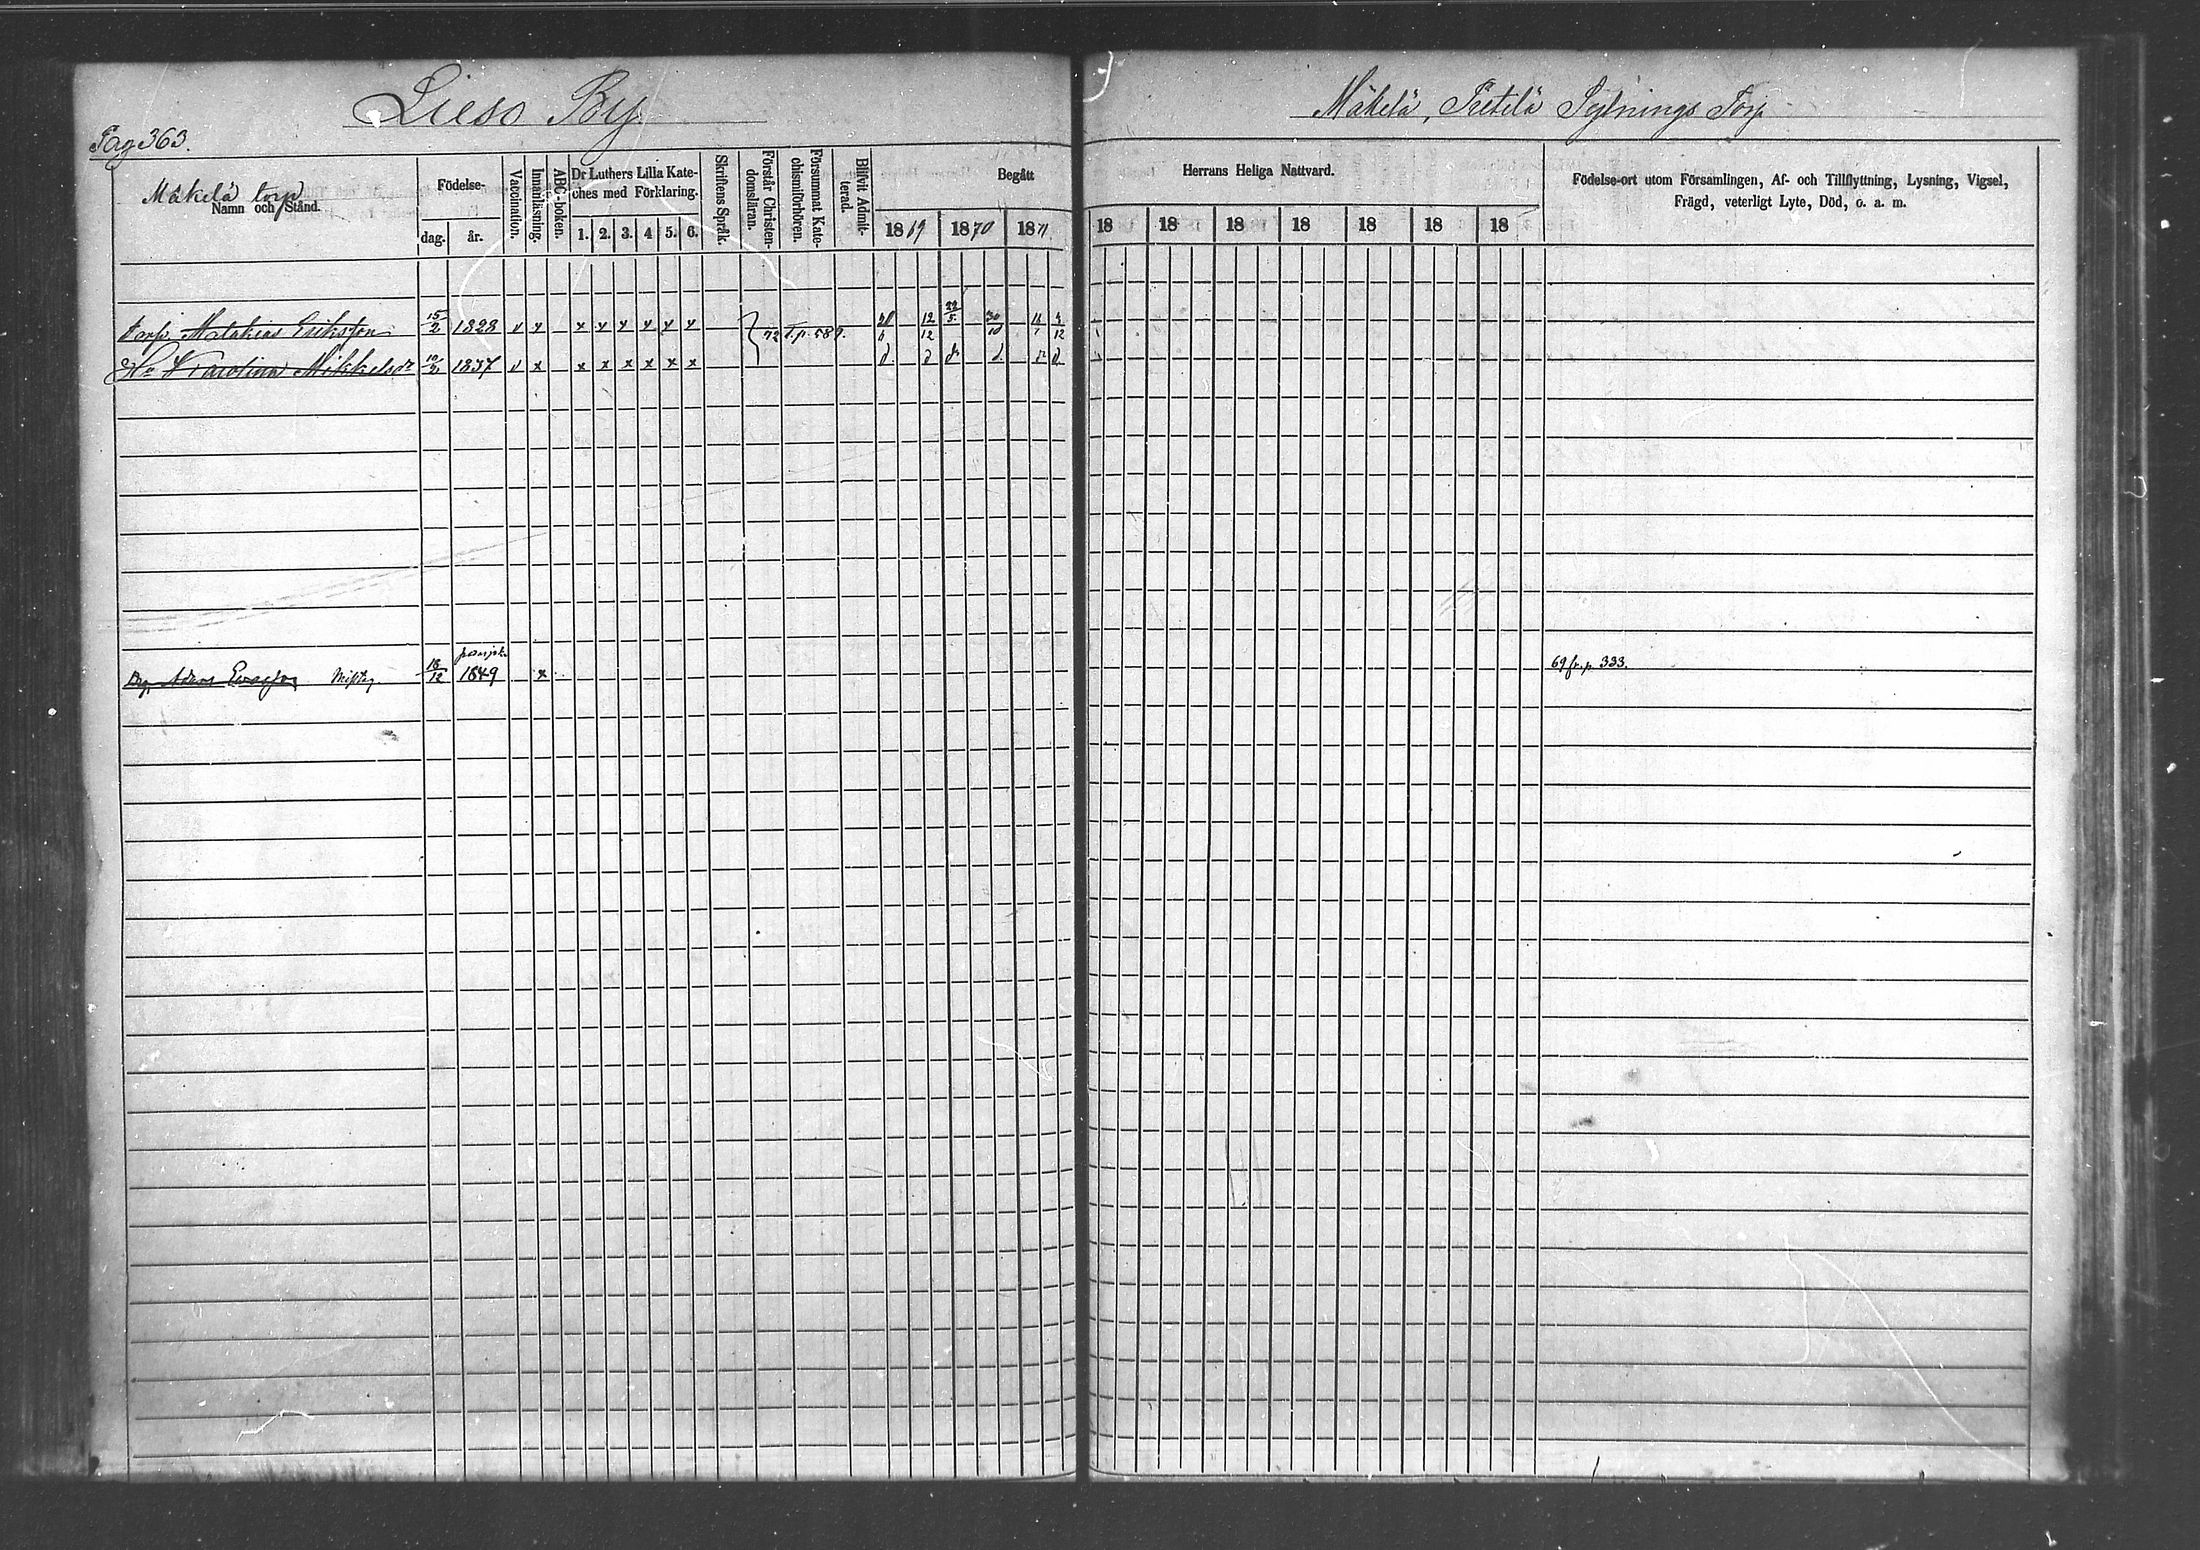 Lieso By
Mäkelä, Pietilä Sytnings Torp
Pag 363.
Mäkelä torp
Namn och Stånd.
Födelse-
dag. år.
Vaccination.
Innanläsning.
ABC-boken.
Dr Luthers Lilla Kate-
ches med Förklaring.
1. 2. 3. 4 5. 6.
Skriftens Språk.
Förstår Christen-
domsläran.
Försummat Kate-
chismiförhören.
Blifvit Admit-
terad.
Begått
1869 1870 1871
Herrans Heliga Nattvard.
18 18 18 18 18 18 18
Födelse-ort utom Församlingen, Af- och Tillflyttning, Lysning, Vigsel,
Frägd, veterligt Lyte, Död, o. a. m.
torp. Matakias Eriksson 15/2 1828 v x x x x x x x 72 t. p. 589. 12/12 22/5 30/10
Hu Karolina Mikkelsdr 10/2 1837 v x x x x x x x d. d d d. d
Drg. Adam Evasson Misstag. 18/12 1849 x 69 fr. p. 333.